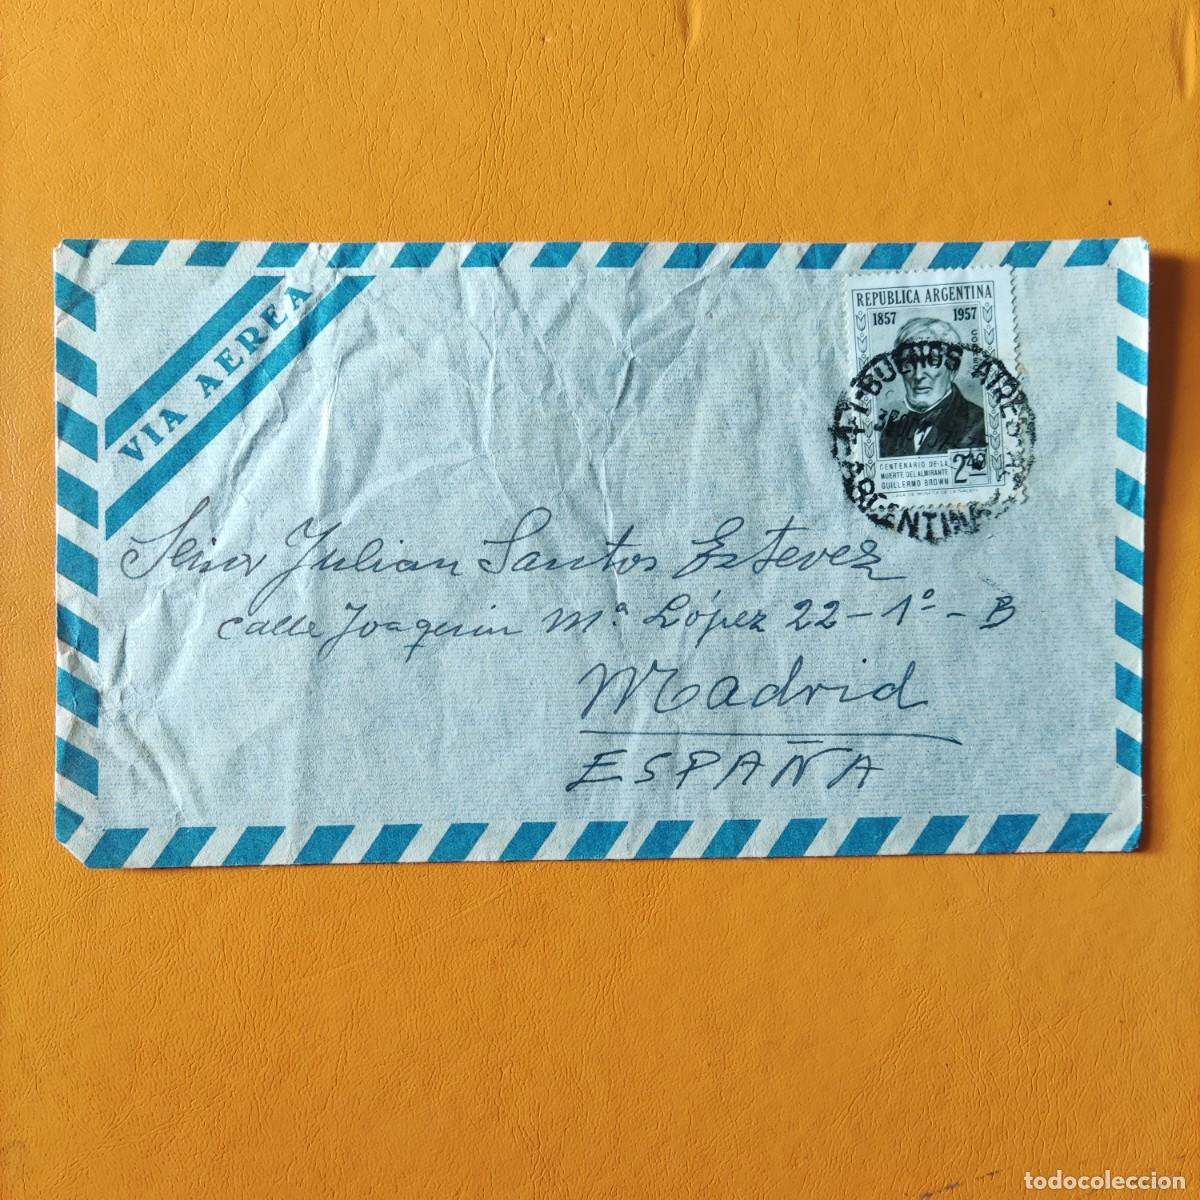 VIA AEREA
REPUBLICA ARGENTINA
1857 1957
CORREOS
BUENOS AIRES
CENTENARIO DE LA
MUERTE DEL ALMIRANTE
GUILLERMO BROWN
2 40
ARGENTINA
Señor Julian Santos Estevez
calle Joaquin Mª López 22-1º-B
Madrid
ESPAÑA
todocoleccion